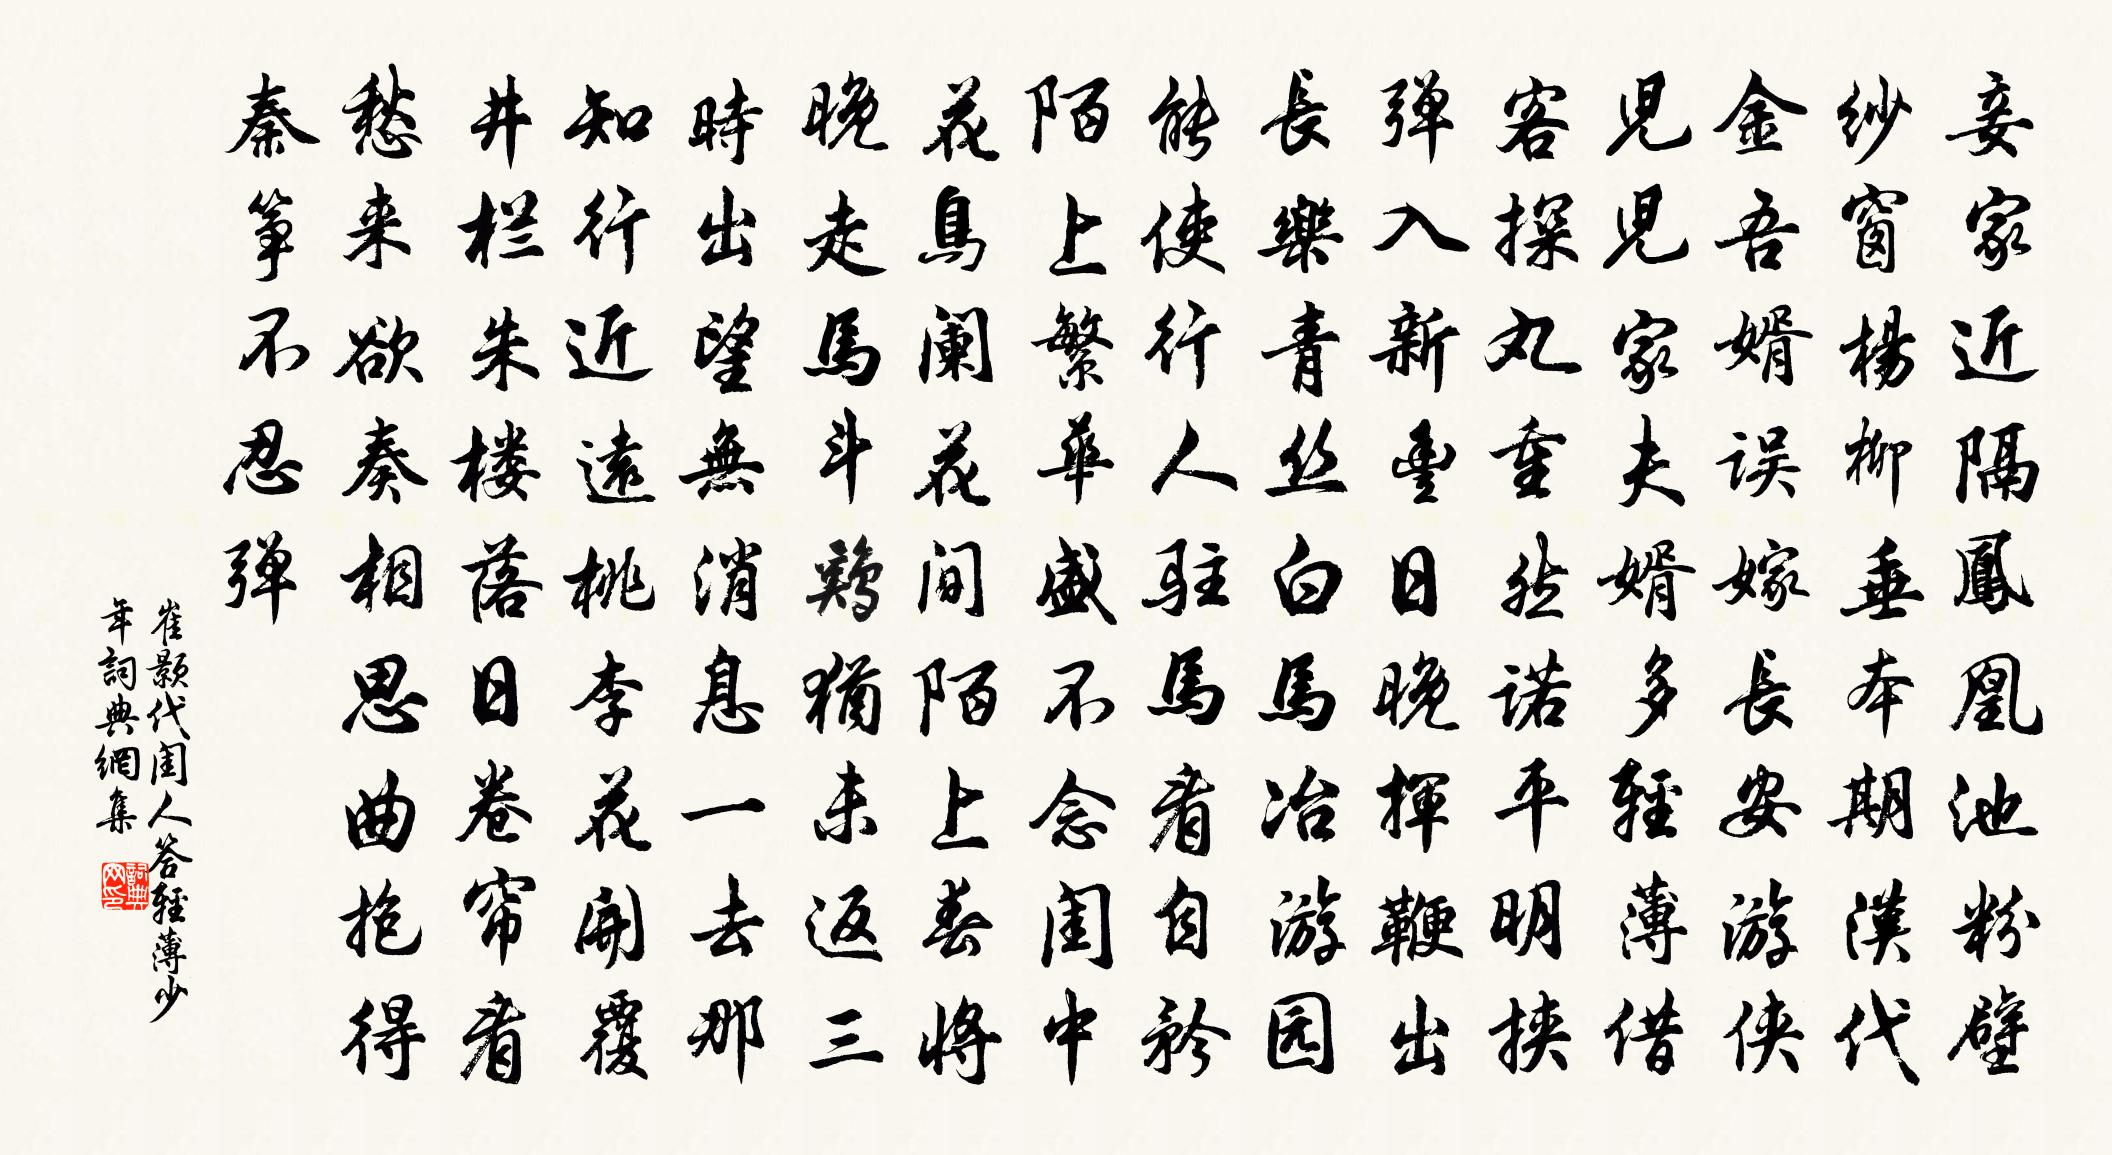 妾家近隔鳳凰池粉壁
紗窗楊柳垂本期漢代
金吾婿误嫁長安游侠
児児家夫婿多輕薄借
客探丸重然诺平明挟
弹入新豐日晚揮鞭出
長樂青丝白馬冶游园
能使行人駐馬看自矜
陌上繁華盛不念闺中
花鳥阑花间陌上春將
晚走馬斗鷄猶未返三
時出望無消息一去那
知行近遠桃李花開覆
井栏朱楼落日卷帘看
愁来欲奏相思曲抱得
秦筝不忍弹
崔颢代闺人答輕薄少
年詞典網集
詞典网印